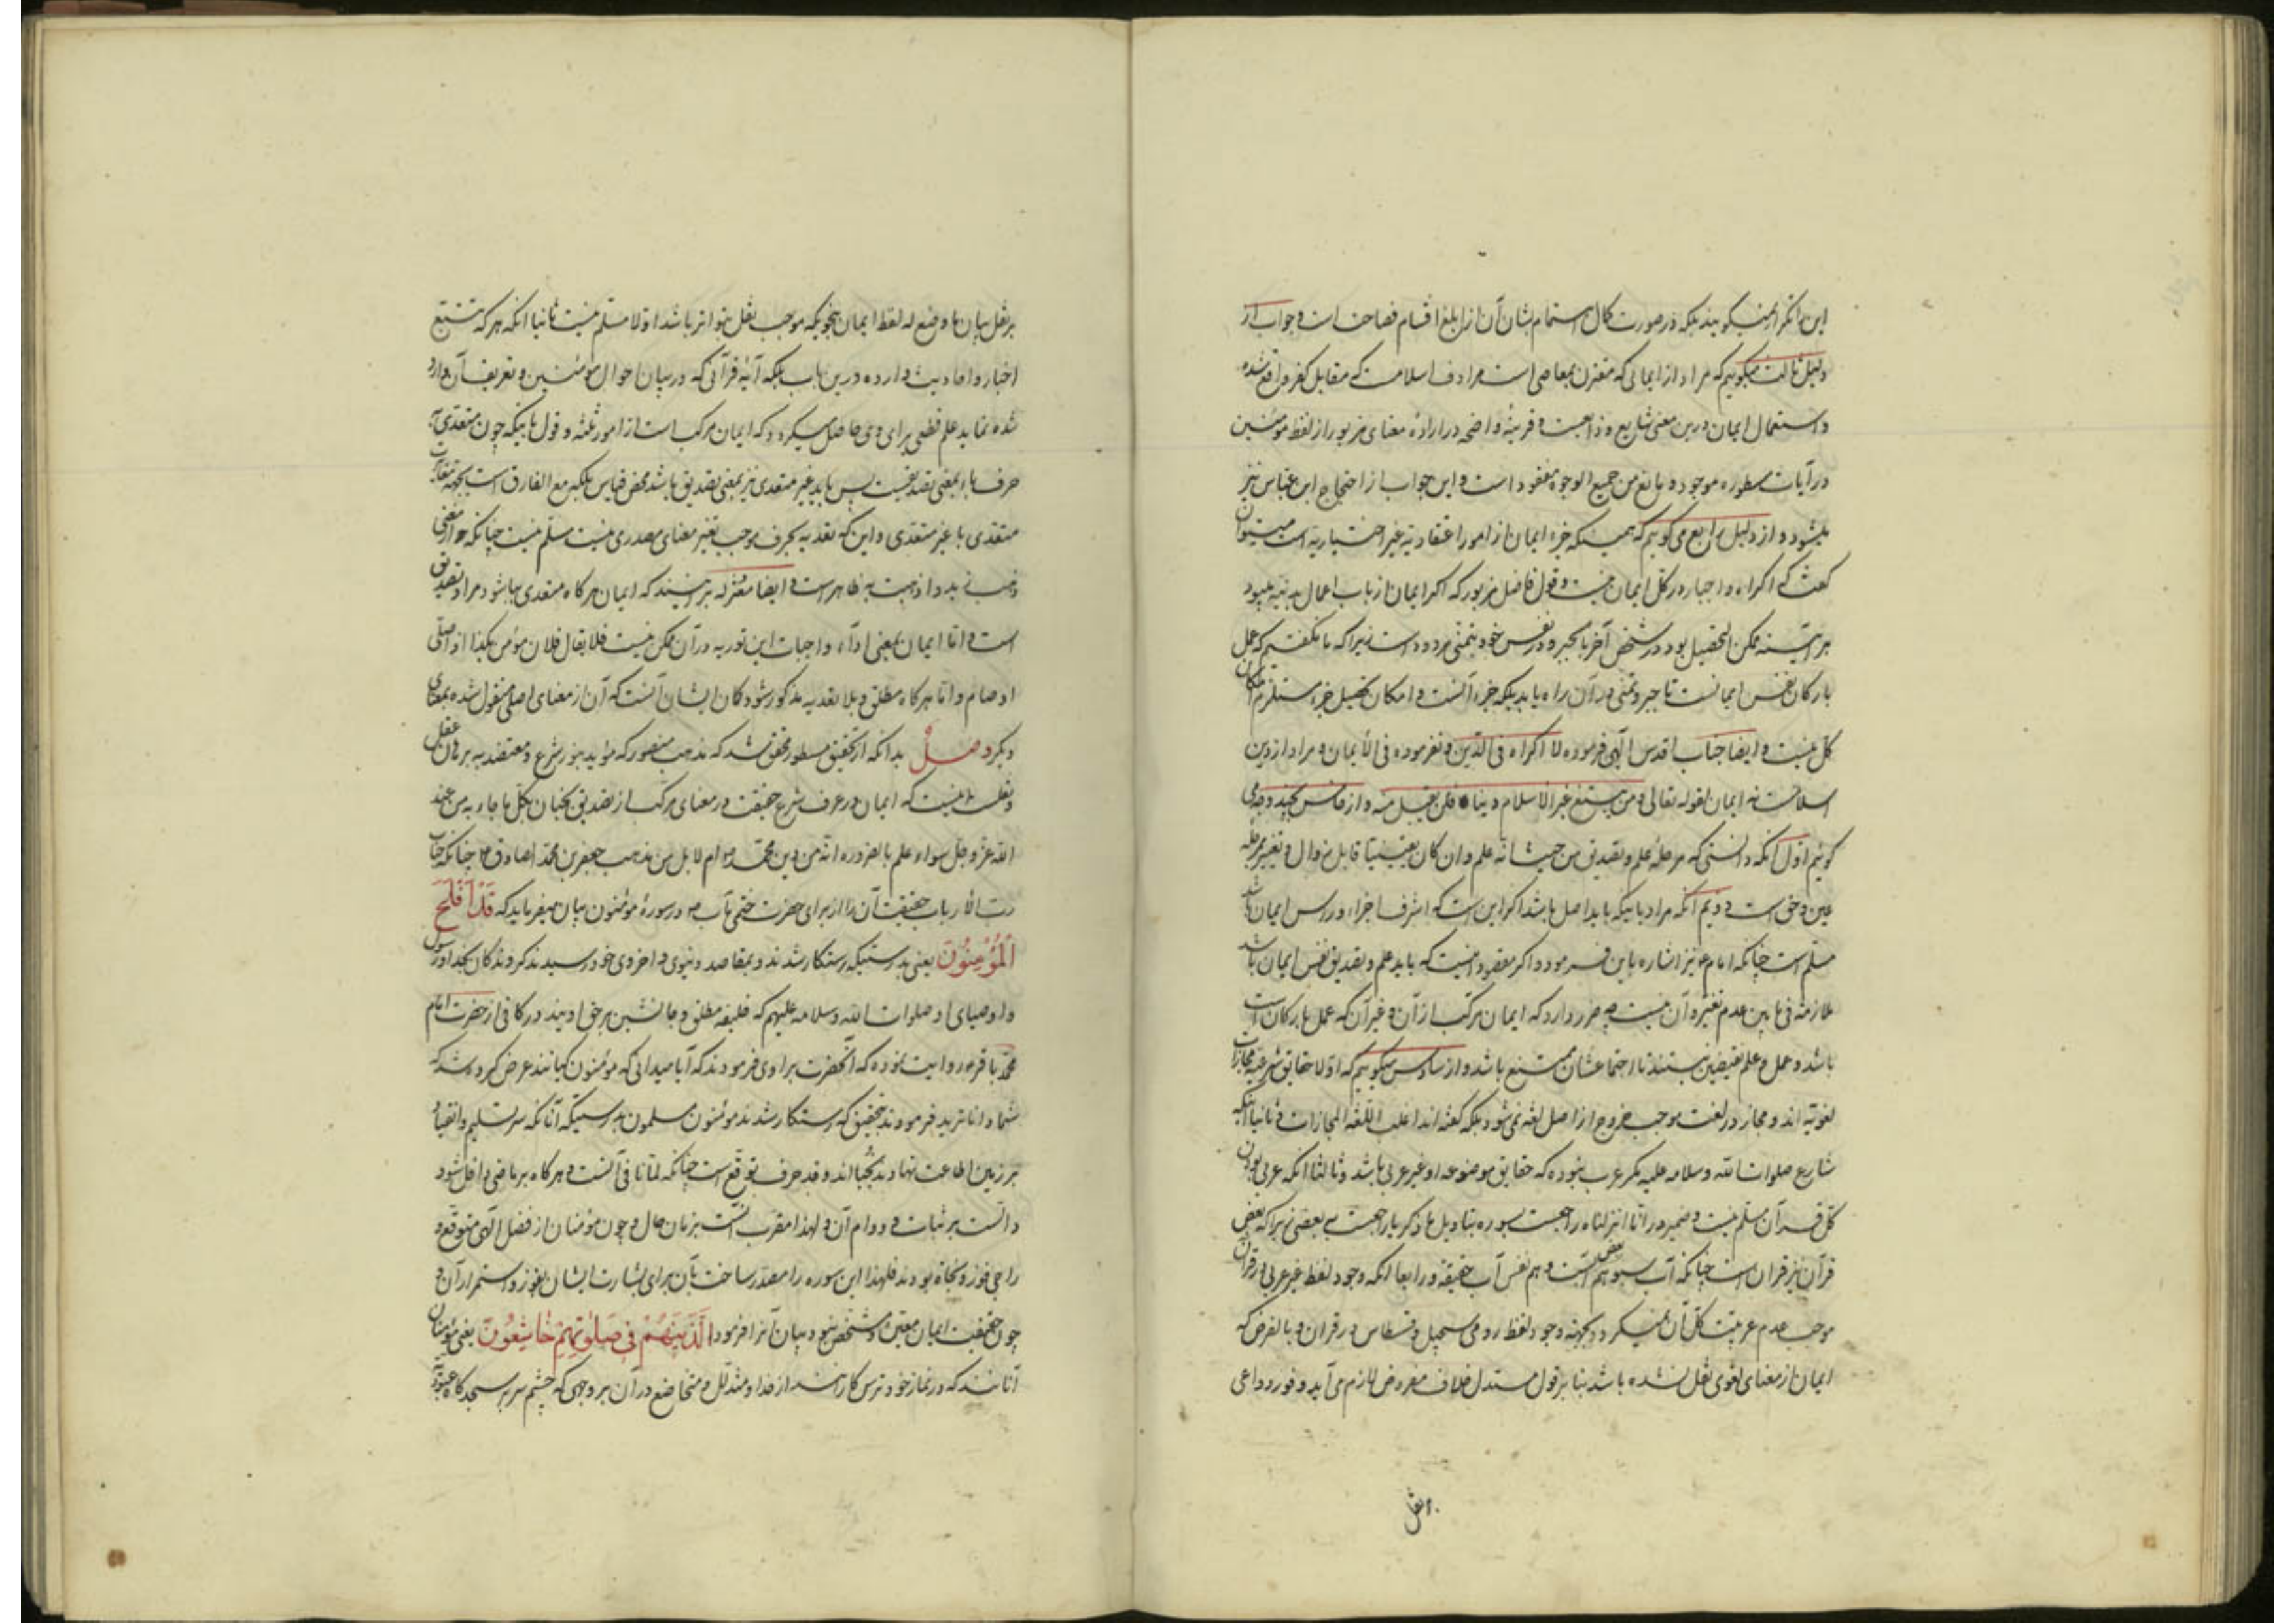 این را تکرار نمیگویند بلکه در صورت کمال اهتمام بشان آن از ابلغ اقسام فصاحت است و جواب از
دلیل ثالث میگوییم که مراد از ایمانی که مقترن بمعاصی است مرادف اسلامست که مقابل کفر واقع شده
و استعمال ایمان درین معنی شایع و ذایعست و قرینه واضحه در اراده معنای مزبور از لفظ مؤمنین
در آیات مسطوره موجود و مانع من جمیع الوجوه مفقود است و این جواب از احتجاج ابن عباس نیز
میشود و از دلیل رابع می گوییم که همینکه جزء ایمان از امور اعتقادیه غیر اختیاریه است میتوان
گفت که اکراه و اجبار در کل ایمان نیست و قول فاضل مزبور که اگر ایمان از باب اعمال بدنیه میبود
هر آینه ممکن التحصیل بود در شخص آخر بالجبر و در نفس خود بتمنی مردود است زیرا که ما نگفتیم که عمل
بارکان نفس ایمانست تا جبر و تمنی در آن راه یابد بلکه جزء آنست و امکان تحصیل جزء مستلزم امکان
کل نیست و ایضا جناب اقدس الهی فرموده لا اکراه فی الدین و نفرموده فی الایمان و مراد از دین
اسلامست نه ایمان لقوله تعالی و من یبتغ غیر الاسلام دینا فلن یقبل منه و از خامس بچند وجه می
گوئیم اول آنکه دانستی که مرحله علم و تصدیق من حیث انه علم و ان کان یقینیا قابل زوال و تغییر مرحله
عین و حق است دویم آنکه مراد باینکه باید اصل باشد اگر این است که اشرف اجزاء و راس ایمان باشد
مسلم است چنانکه امام ع نیز اشاره باین فرمود و اگر مقصود اینست که باید علم و تصدیق نفس ایمان باشد
ملازمه فی مابین عدم تغیر و آن نیست چه ضرر دارد که ایمان مرکب از آن و غیر آن که عمل بارکان است
باشد و عمل و علم نقیضین نیستند تا اجتماعشان ممتنع باشد و از سادس میگوییم که اولا حقایق شرعیه مجازات
لغویه اند و مجاز در لغت موجب خروج از اصل لغه نمی شود بلکه گفته اند اغلب اللغه المجازات و ثانیا اینکه
شارع صلوات الله و سلامه علیه مگر عرب نبوده که حقایق موضوعه او غیر عربی باشد و ثالثا آنکه عربی بودن
کل قرآن مسلم نیست و ضمیر در انا انزلناه راجعست بسوره بتاویل ما ذکر یا راجعست ببعضی زیرا که بعض
قرآن نیز قران است چنانکه آب سبو هم بعض آبست و هم نفس آب حقیقه و رابعا آنکه وجود لفظ غیر عربی در قران
موجب عدم عربیت کل آن نمیگردد بجهه وجود لفظ رومی سجیل و قسطاس در قران و بالفرض که
ایمان از معنای لغوی نقل نشده باشد بنا بر قول مستدل خلاف مفروض لازم می آید و وفور دواعی
بر نقل
بر نقل بیان ما وضع له لفظ ایمان بنحویکه موجب نقل بتواتر باشد اولا مسلم نیست ثانیا آنکه هر که تتبع
اخبار و احادیث وارده درین باب بلکه آیه قرآنی که در بیان احوال مؤمنین و تعریف آن وارد
شده نماید علم قطعی برای وی حاصل میگردد که ایمان مرکب است از امور ثلثه و قول باینکه چون متعدی آن
حرف باء بمعنی تصدیقست پس باید غیر متعدی نیز بمعنی تصدیق باشد محض قیاس بلکه مع الفارق است بجهه تغایر
متعدی با غیر متعدی و این که تعدیه بحرف موجب تغییر معنای مصدری نیست مسلم نیست چنانکه جواز معنی
ذهب بزید و اذهبت به ظاهر است و ایضا معتزله برآنند که ایمان هر گاه متعدی بباء شود مراد تصدیق
است و اما ایمان بمعنی اداء واجبات این تعدیه در آن ممکن نیست فلا یقال فلان مؤمن بکذا اذا صلی
او صام و اما هر گاه مطلق و بلا تعدیه مذکور شود گمان ایشان آنست که آن از معنای اصلی منقول شده بمعنای
دیگر وصل بدانکه از تحقیق مسطور محقق شد که مذهب منصور که مؤید بنور شرع و معتضد به برهان عقل
و نقلست اینست که ایمان در عرف شرع حقیقت در معنای مرکب از تصدیق بجنان بکل ما جاء به من عند
الله عز و جل سواء علم بالضروره انه من دین محمد ص ام لا بل من مذهب جعفر بن محمد الصادق ع چنانکه جناب
رب الارباب حقیقت آن را از برای حضرت ختمی مآب ص در سوره مؤمنون بیان میفرماید که قَدْ أَفْلَحَ
الْمُؤْمِنُونَ یعنی بدرستیکه رستگار شدند و بمقاصد دنیوی و اخروی خود رسیدند گروندگان بخدا و رسول
و اوصیای او صلوات الله و سلامه علیهم که خلیفه مطلق و جانشین بر حق اویند در کافی از حضرت امام
محمد باقر ع روایت نموده که آنحضرت براوی فرمودند که آیا میدانی که مؤمنون کیانند عرض کرده شد که
شما داناترید فرمودند بتحقیق که رستگار شدند مؤمنون مسلمون بدرستیکه آنانکه سر تسلیم و انقیاد
بر زمین اطاعت نهادند نجبااند و قد حرف توقع است چنانکه لما نافی آنست و هر گاه بر ماضی داخل شود
دالست بر ثبات و دوام آن و لهذا مقرب آنست بزمان حال و چون مؤمنان از فضل الهی متوقع و
راجی فوز و نجاة بودند فلهذا این سوره را مصدر ساخت بآن برای بشارت ایشان بفوز و استمرار آن و
چون حقیقت ایمان معین و مشخص نبود بیان آنرا فرمود الَّذِینَ هُمْ فِی صَلٰوتِهِمْ خَاشِعُونَ یعنی مؤمنان
آنانند که در نماز خود ترس کارانند از خدا و متذلل و متخاضع در آن بر وجهی که چشم سر بر سجده گاه